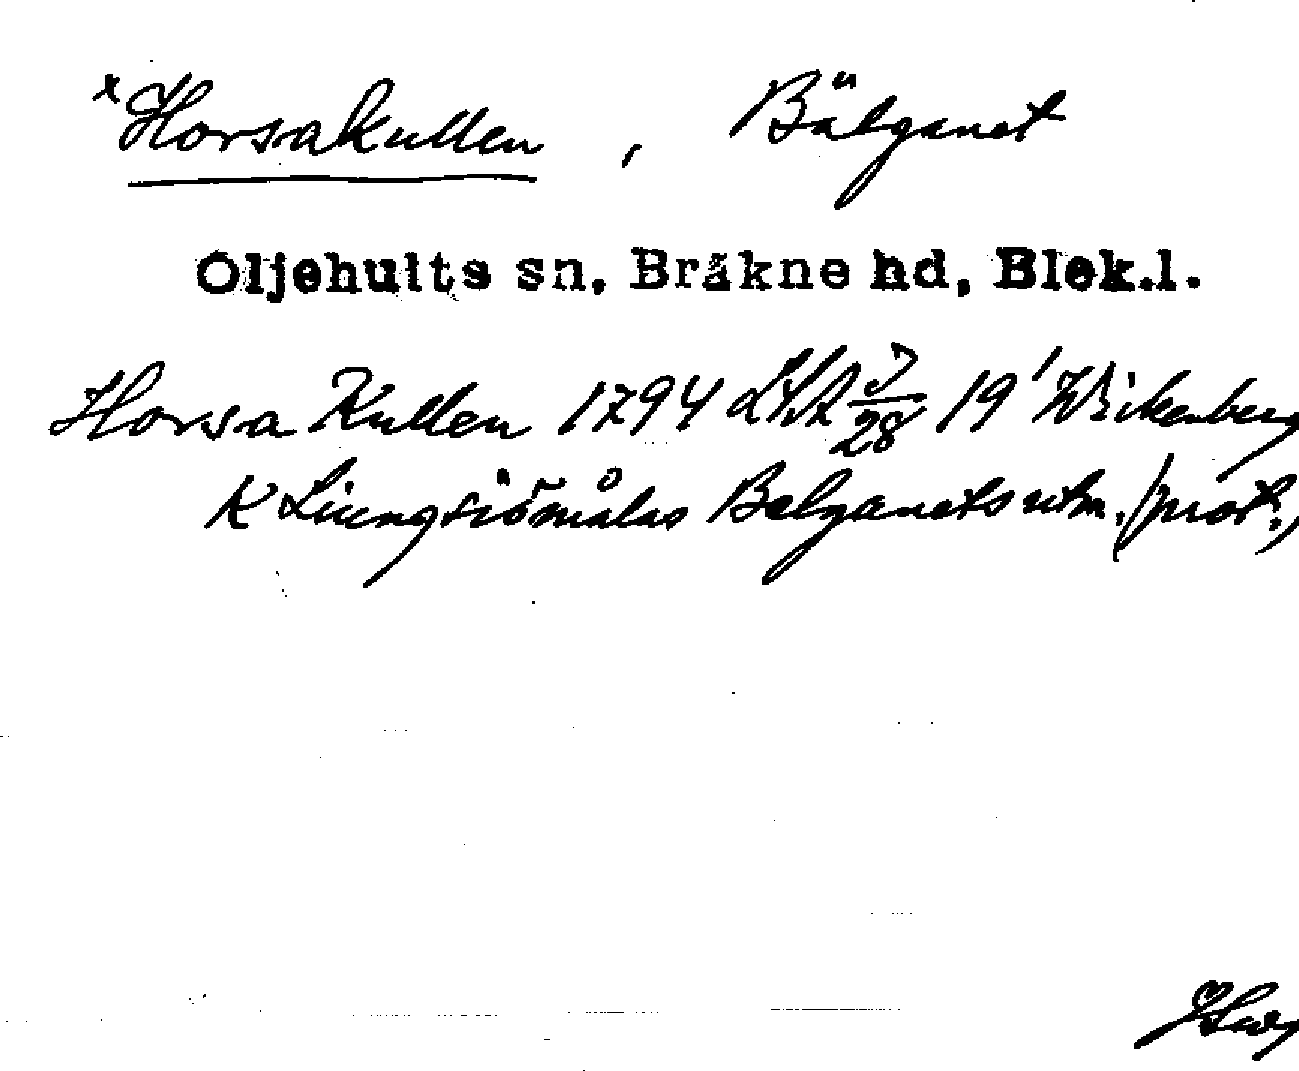 *Horsakullen, Bälganet
Öljehults sn, Bräkne hd, Blek.l.
Horsa Kullen 1794 LVA J/28 19' Wikenberg
K Liungsiömålas Belganets utm. (prot.)